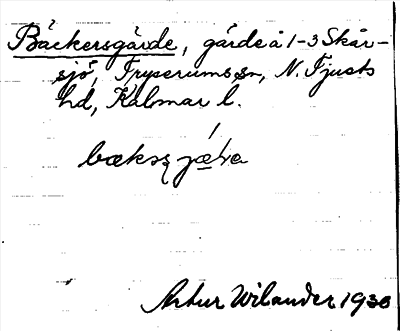 Bäckersgärde, gärde å 1-3 Skår-
sjö, Fryserums sn, N. Tjusts
hd, Kalmar l.
Artur Wilander 1930